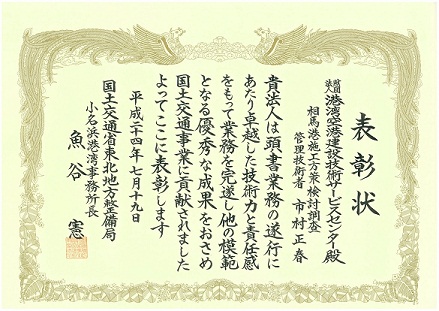 表彰状
財団法人 港湾空港建設技術サービスセンター殿
相馬港施工方策検討調査
管理技術者 市村正春
貴法人は頭書業務の遂行に
あたり卓越した技術力と責任感
をもって業務を完遂し他の模範
となる優秀な成果をおさめ
国土交通事業に貢献されました
よってここに表彰します
平成二十四年七月十九日
国土交通省東北地方整備局
小名浜港湾事務所長
魚谷 憲